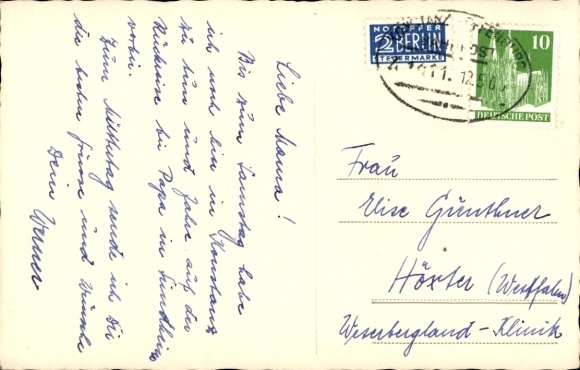 Liebe Mama!
Bis zum Samstag habe
ich noch hier in Konstanz
zu tun und fahre auf der
Rückreise bei Papa in Sundheim
vorbei.
Zum Muttertag sende ich Dir
die besten Grüsse und Wünsche
Dein Werner
NOTOPFER
2 BERLIN
STEUERMARKE
10
DEUTSCHE POST
Frau
Elise Günthner
Höxter (Westfalen)
Weserbergland-Klinik